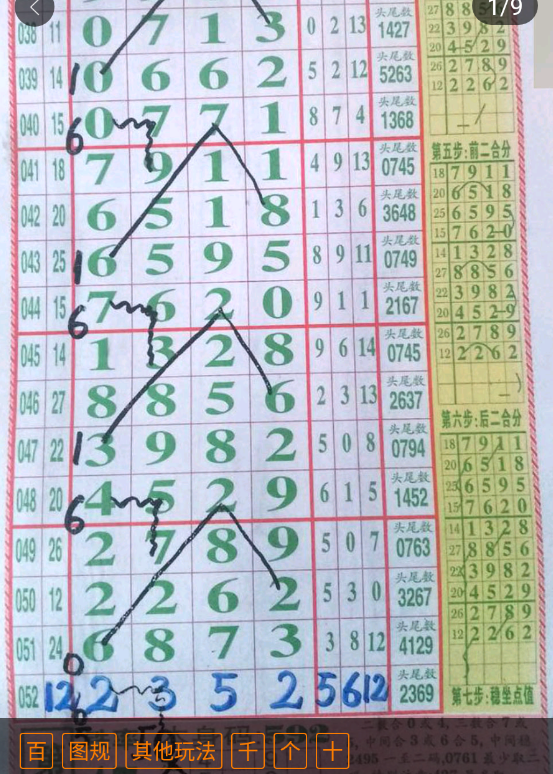 1/9
038 11 0 7 1 3 0 2 13 头尾数 1427
039 14 0 6 6 2 5 2 12 头尾数 5263
1
040 15 0 7 7 1 8 7 4 头尾数 1368
6
041 18 7 9 1 1 4 9 13 头尾数 0745
042 20 6 5 1 8 1 3 6 头尾数 3648
043 25 6 5 9 5 8 9 11 头尾数 0749
1
044 15 7 6 2 0 9 1 1 头尾数 2167
6
045 14 1 3 2 8 9 6 14 头尾数 0745
046 27 8 8 5 6 2 3 13 头尾数 2637
047 22 3 9 8 2 5 0 8 头尾数 0794
1
048 20 4 5 2 9 6 1 5 头尾数 1452
6
049 26 2 7 8 9 5 0 7 头尾数 0763
050 12 2 2 6 2 5 3 0 头尾数 3267
051 24 6 8 7 3 3 8 12 头尾数 4129
0
052 12 2 3 5 2 5 6 12 头尾数 2369
22 3 9 8 2
20 4 5 2 9
26 2 7 8 9
12 2 2 6 2
第五步:前二合分
18 7 9 1 1
20 6 5 1 8
25 6 5 9 5
15 7 6 2 0
14 1 3 2 8
27 8 8 5 6
22 3 9 8 2
20 4 5 2 9
26 2 7 8 9
12 2 2 6 2
第六步:后二合分
18 7 9 1 1
20 6 5 1 8
25 6 5 9 5
15 7 6 2 0
14 1 3 2 8
27 8 8 5 6
22 3 9 8 2
20 4 5 2 9
26 2 7 8 9
12 2 2 6 2
第七步:稳坐点值
百 图规 其他玩法 千 个 十